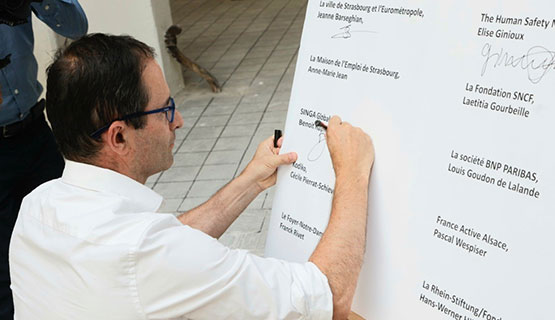 La ville de Strasbourg et l'Eurométropole,
Jeanne Barseghian,
La Maison de l'Emploi de Strasbourg,
Anne-Marie Jean
SINGA Global
Benoît
Kodiko,
Cécile Pierrat-Schiever
Le Foyer Notre-Dame
Franck Rivet
The Human Safety
Elise Ginioux
La Fondation SNCF,
Laetitia Gourbeille
La société BNP PARIBAS,
Louis Goudon de Lalande
France Active Alsace,
Pascal Wespiser
La Rhein-Stiftung/Fond
Hans-Werner